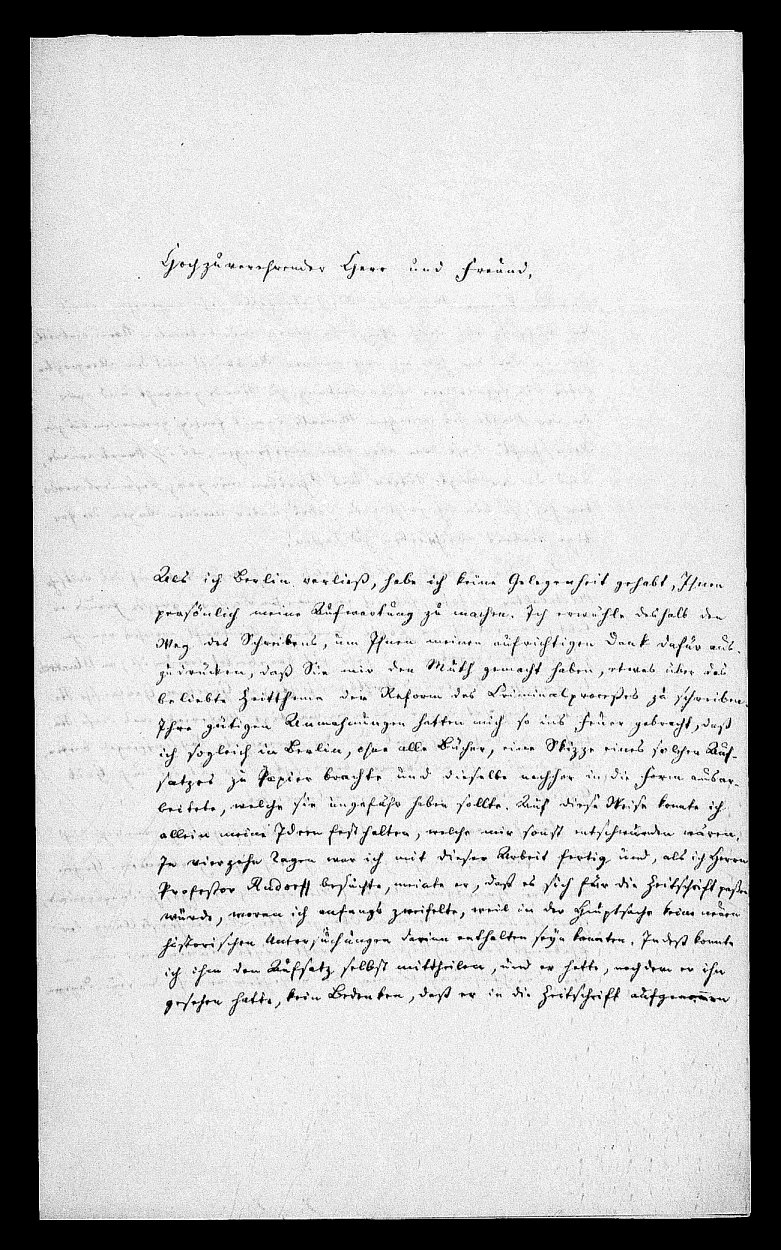 Hochzuverehrender Herr und Freund,
Als ich Berlin verließ, habe ich keine Gelegenheit gehabt, Ihnen
persönlich meine Aufwartung zu machen. Ich erwähle deshalb den
Weg des Schreibens, um Ihnen meinen aufrichtigen Dank dafür aus-
zudrücken, daß Sie mir den Muth gemacht haben, etwas über das
beliebte Zeitthema der Reform des Criminalprocesses zu schreiben.
Ihre gütigen Anmahnungen hatten mich so ins Feuer gebracht, daß
ich sogleich in Berlin, ohne alle Bücher, eine Skizze eines solchen Auf-
satzes zu Papier brachte und dieselbe nachher in die Form ausar-
beitete, welche sie ungefähr haben sollte. Auf diese Weise konnte ich
allein meine Ideen festhalten, welche mir sonst entschwunden wären.
In vierzehn Tagen war ich mit dieser Arbeit fertig und, als ich Herrn
Professor Rudorff besuchte, meinte er, daß es sich für die Zeitschrift passen
würde, woran ich anfangs zweifelte, weil in der Hauptsache keine neuen
historischen Untersuchungen darinn enthalten seyn konnten. Indeß konnte
ich ihm den Aufsatz selbst mittheilen, und er hatte, nachdem er ihn
gesehen hatte, kein Bedenken, daß er in die Zeitschrift aufgenommen